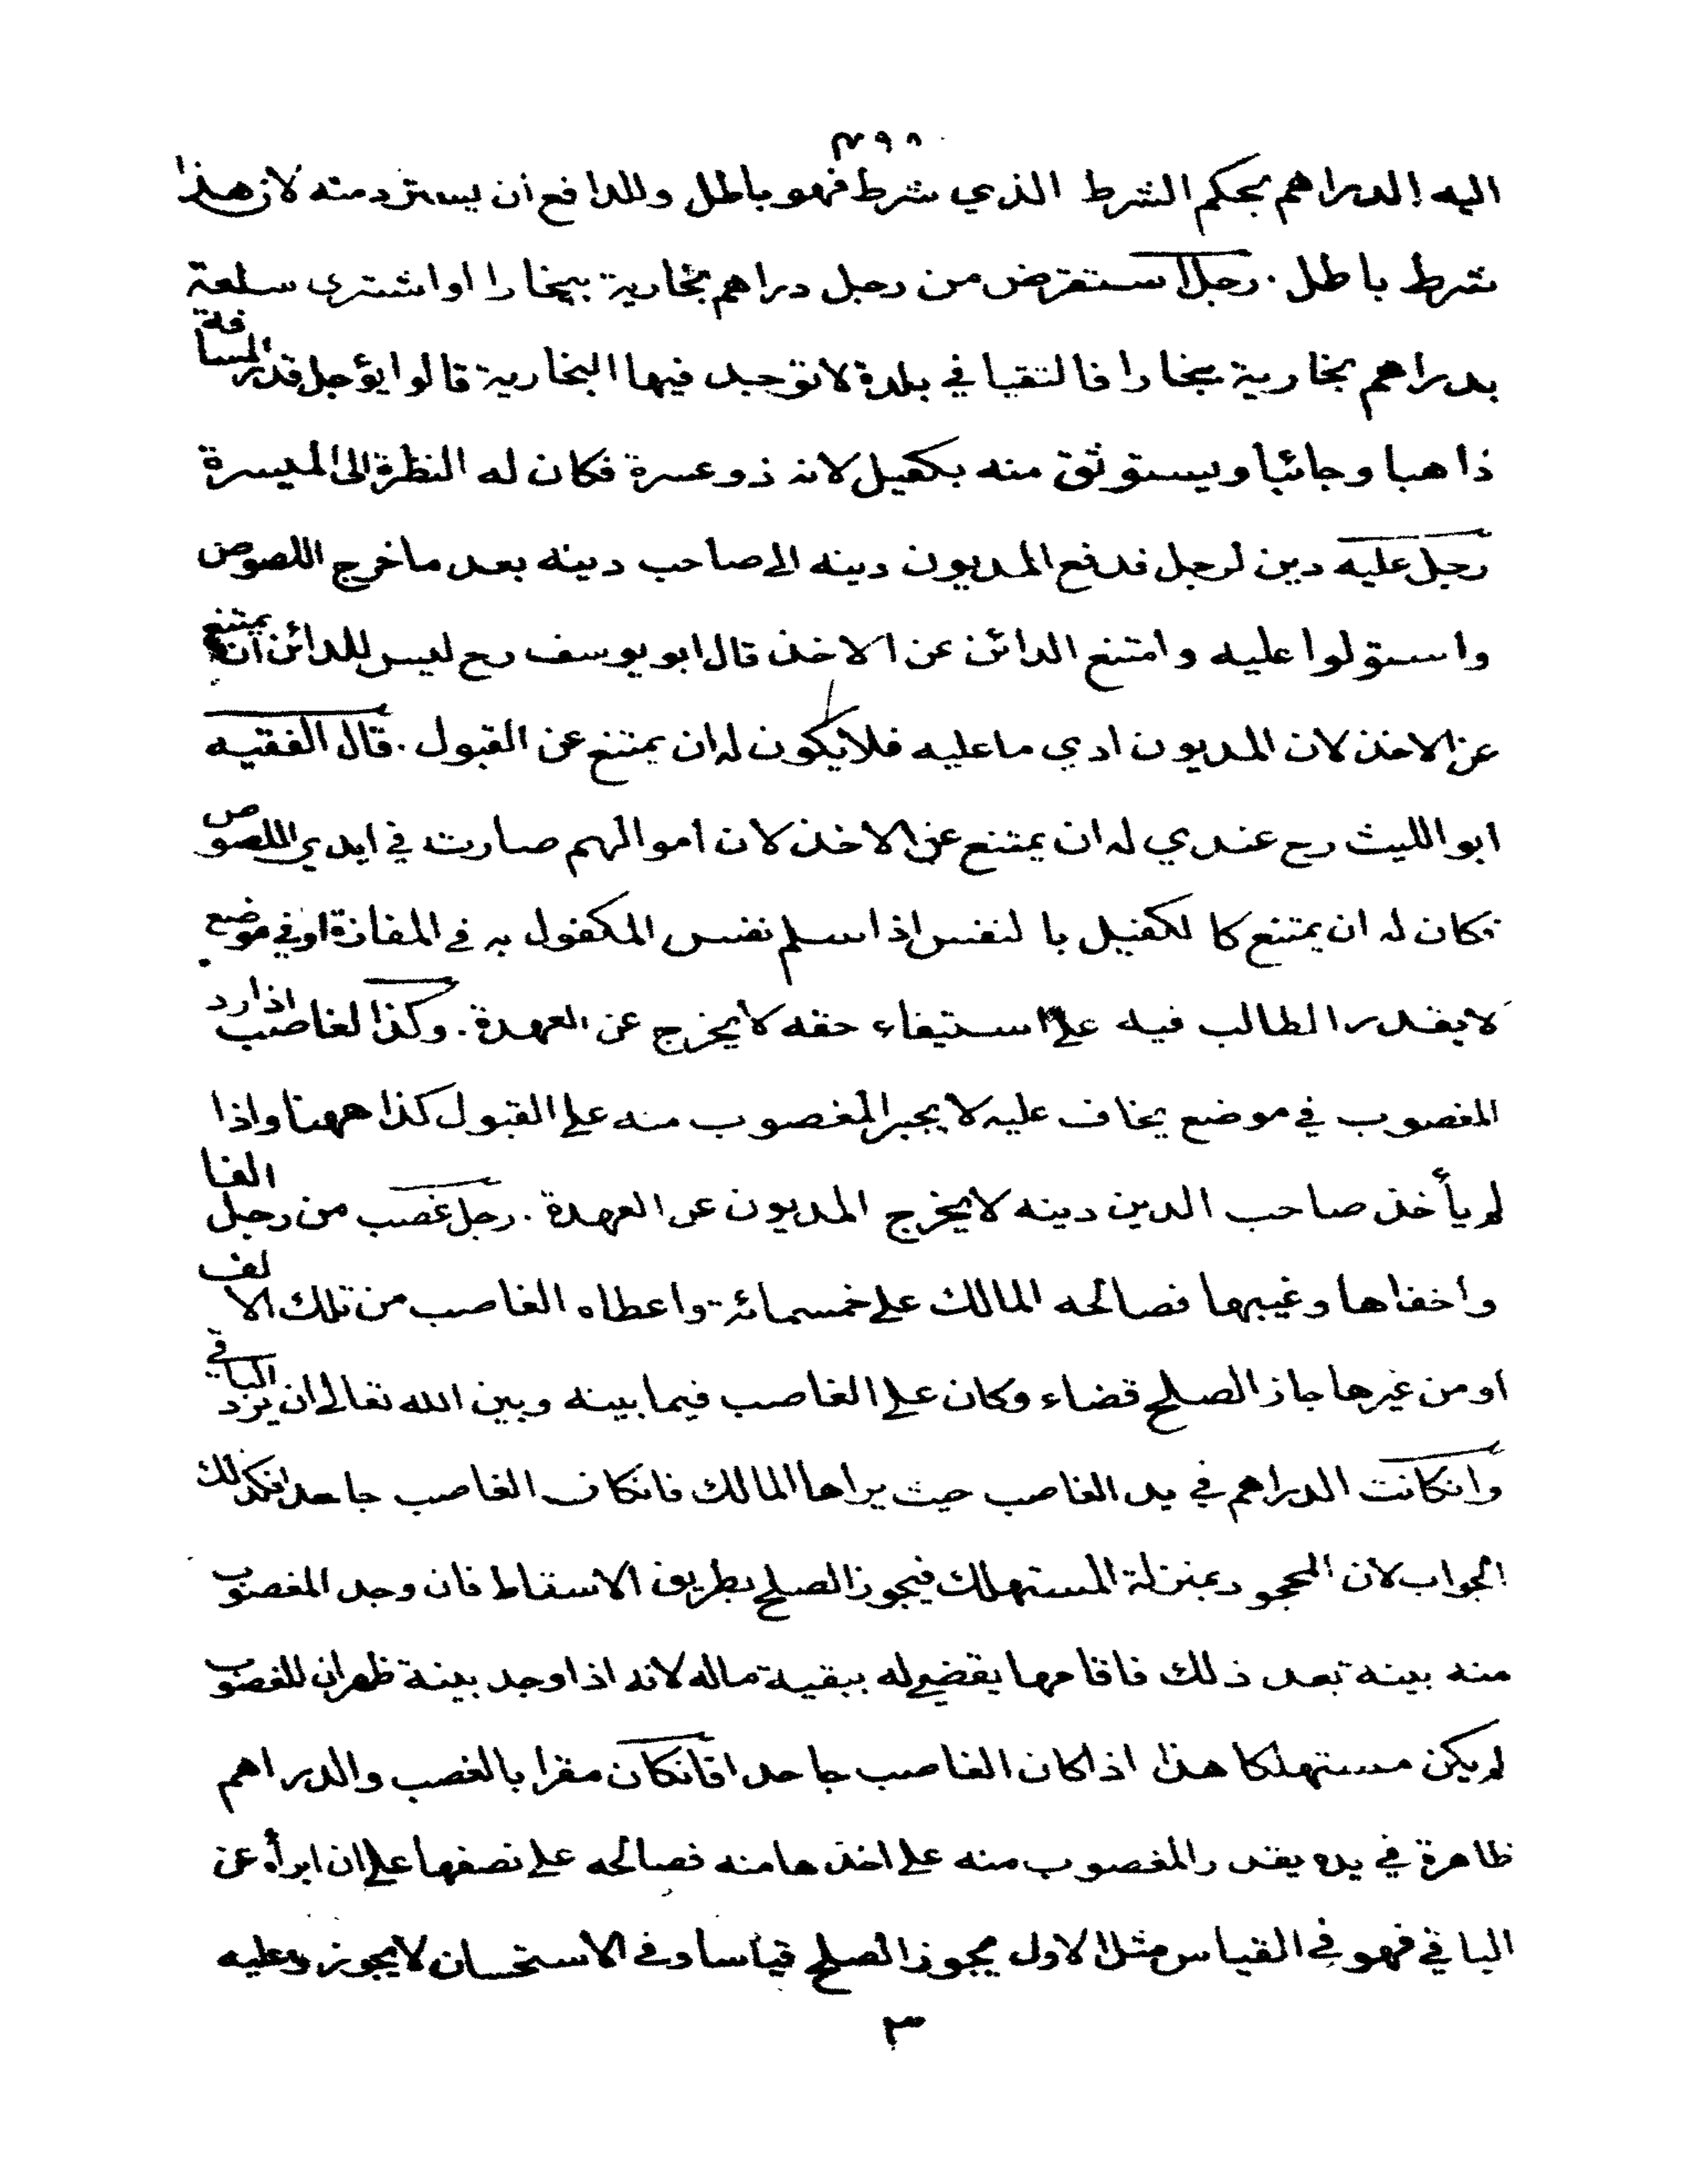 ٣٩٨
اليه الدراهم بحكم الشرط الذي شرط فهو باطل وللدافع ان يسترد منه لان هذا
شرط باطل . رجل استقرض من رجل دراهم بخارية ببخارا او اشترى سلعة
بدراهم بخارية ببخارا فالتقيا في بلدة لا توجد فيها البخارية قالوا يؤجل قدر المسافة
ذاهبا وجائيا ويستوثق منه بكفيل لانه ذو عسرة فكان له النظرة الى الميسرة
رجل عليه دين لرجل فدفع المديون دينه الى صاحب دينه بعد ما خرج اللصوص
واستولوا عليه وامتنع الدائن عن الاخذ قال ابو يوسف رح ليس للدائن ان يمتنع
عن الاخذ لان المديون ادي ما عليه فلا يكون له ان يمتنع عن القبول . قال الفقيه
ابو الليث رح عندي له ان يمتنع عن الاخذ لان اموالهم صارت في ايدي اللصوص
فكان له ان يمتنع كالكفيل بالنفس اذا سلم نفس المكفول به في المفازة او في موضع
لا يقدر الطالب فيه على استيفاء حقه لا يخرج عن العهدة . وكذا الغاصب اذا رد
المغصوب في موضع يخاف عليه لا يجبر المغصوب منه على القبول كذا ههنا واذا
لم يأخذ صاحب الدين دينه لا يخرج المديون عن العهدة . رجل غصب من رجل الفا
واخفاها وغيبها فصالحه المالك على خمسمائة واعطاه الغاصب من تلك الالف
او من غيرها جاز الصلح قضاء وكان على الغاصب فيما بينه وبين الله تعالى ان يرد الباقي
وانكانت الدراهم في يد الغاصب حيث يراها المالك فانكان الغاصب جاحدا فكذلك
الجواب لان المجحود بمنزلة المستهلك فيجوز الصلح بطريق الاسقاط فان وجد المغصوب
منه بينة بعد ذلك فاقامها يقضى له ببقية ماله لانه اذا وجد بينة ظهر ان المغصوب
لم يكن مستهلكا هذا اذا كان الغاصب جاحدا فانكان مقرا بالغصب والدراهم
ظاهرة في يده يقدر المغصوب منه على اخذها منه فصالحه على نصفها على ان ابرأه عن
الباقي فهو في القياس مثل الاول يجوز الصلح قياسا وفي الاستحسان لا يجوز وعليه
٣